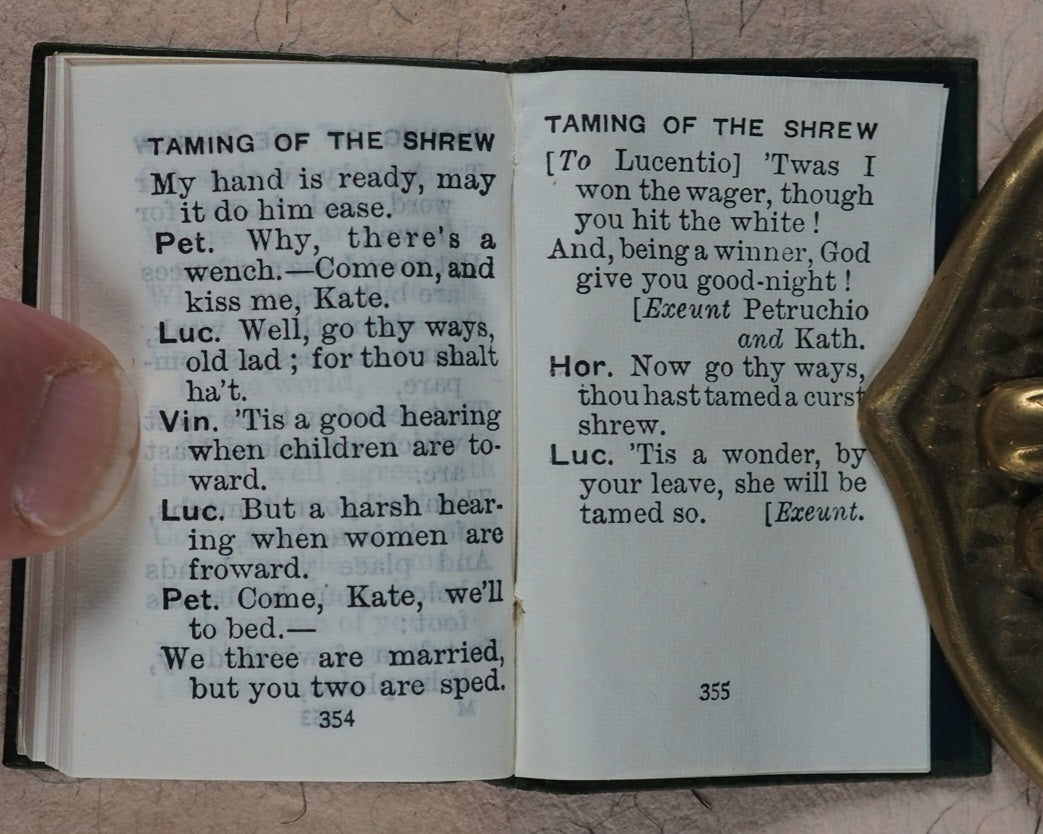 TAMING OF THE SHREW
My hand is ready, may
it do him ease.
Pet. Why, there's a
wench.—Come on, and
kiss me, Kate.
Luc. Well, go thy ways,
old lad ; for thou shalt
ha't.
Vin. 'Tis a good hearing
when children are to-
ward.
Luc. But a harsh hear-
ing when women are
froward.
Pet. Come, Kate, we'll
to bed.—
We three are married,
but you two are sped.
354
TAMING OF THE SHREW
[To Lucentio] 'Twas I
won the wager, though
you hit the white !
And, being a winner, God
give you good-night !
[Exeunt Petruchio
and Kath.
Hor. Now go thy ways,
thou hast tamed a curst
shrew.
Luc. 'Tis a wonder, by
your leave, she will be
tamed so. [Exeunt.
355